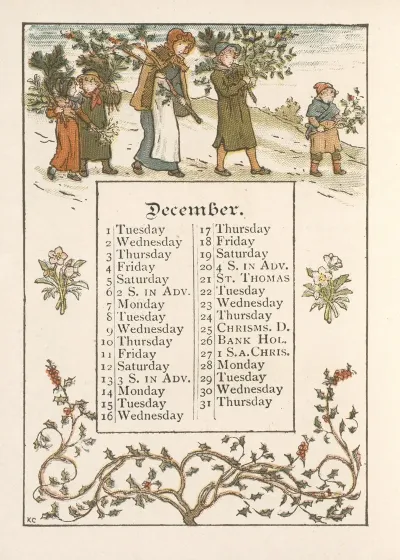 December.
1 Tuesday
2 Wednesday
3 Thursday
4 Friday
5 Saturday
6 2 S. in Adv.
7 Monday
8 Tuesday
9 Wednesday
10 Thursday
11 Friday
12 Saturday
13 3 S. in Adv.
14 Monday
15 Tuesday
16 Wednesday
17 Thursday
18 Friday
19 Saturday
20 4 S. in Adv.
21 St. Thomas
22 Tuesday
23 Wednesday
24 Thursday
25 Chrisms. D.
26 Bank Hol.
27 1 S.a.Chris.
28 Monday
29 Tuesday
30 Wednesday
31 Thursday